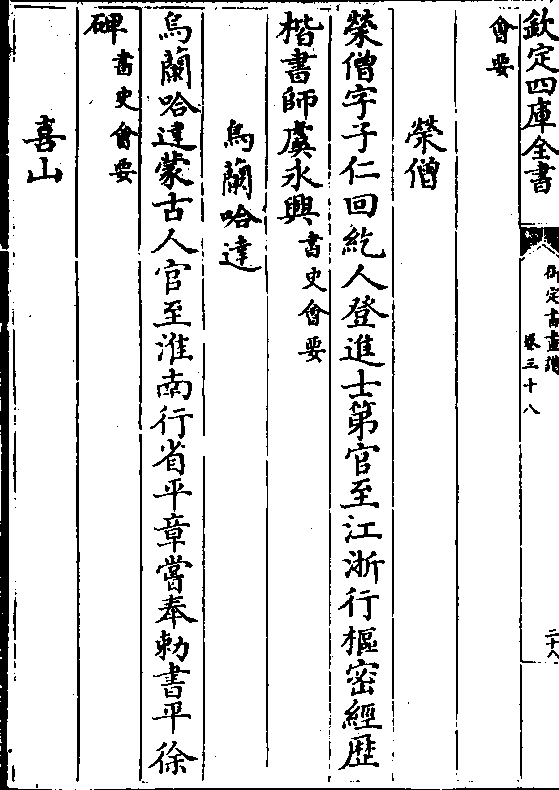 欽定四庫全書
御定書畫譜
卷三十八
二十八
會要
榮僧
榮僧字子仁回紇人登進士第官至江浙行樞密經歷
楷書師虞永興書史會要
烏蘭哈達
烏蘭哈達蒙古人官至淮南行省平章嘗奉勅書平徐
碑書史會要
喜山